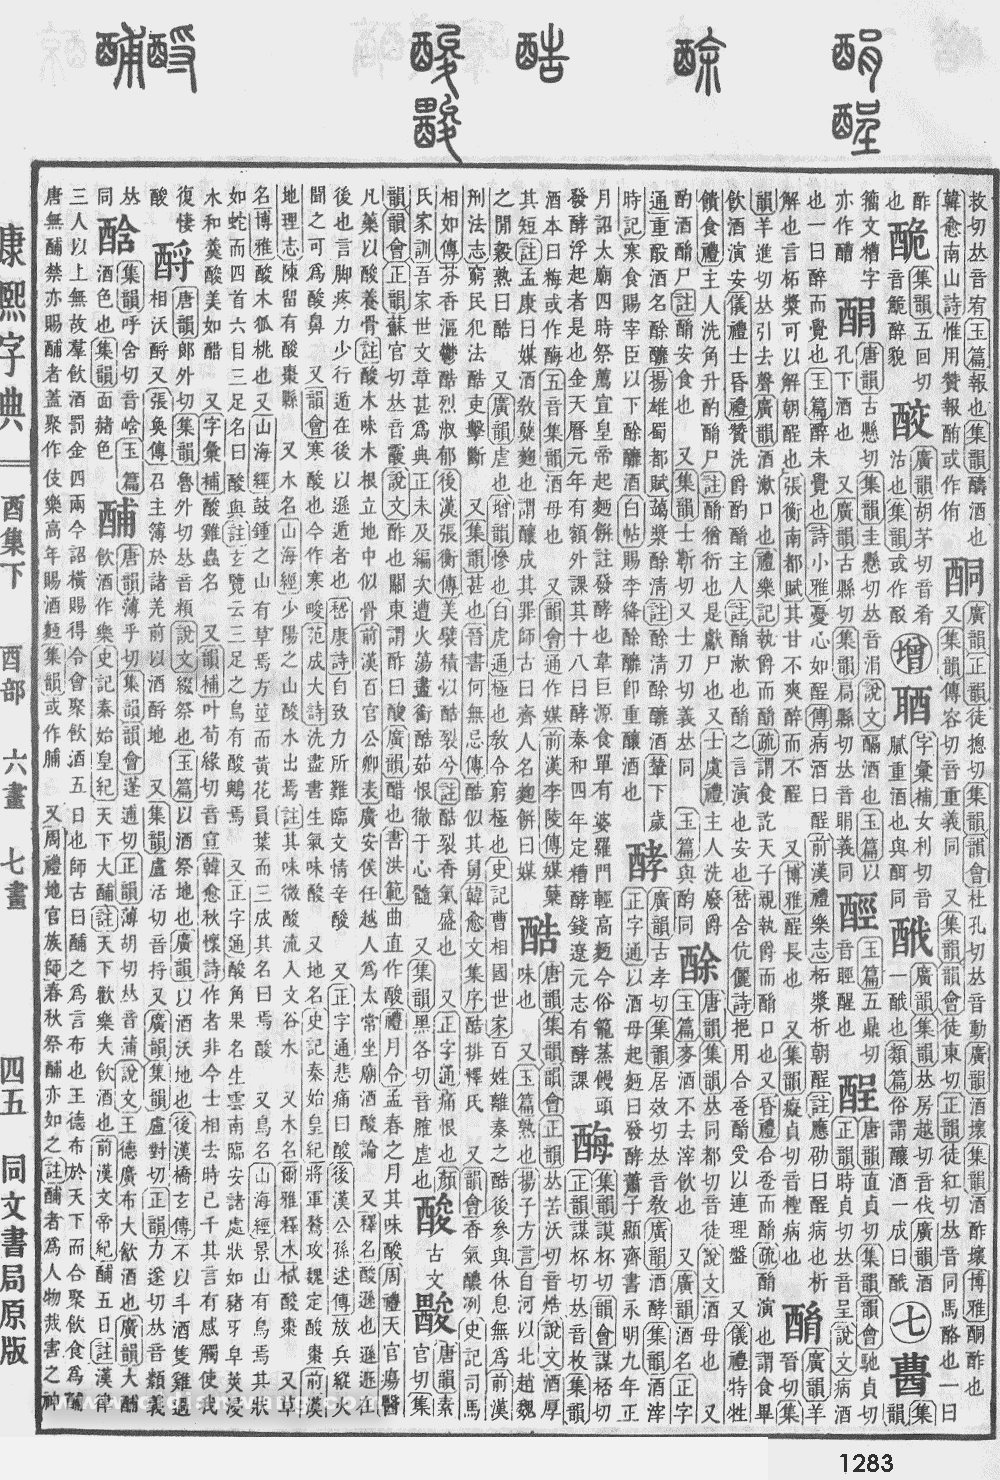 酳 酺
酸 酸
酷
酴
酲 酲
韓愈南山詩惟用贊報酭或作侑
酮
廣韻正韻徒摠切集韻韻會杜孔切𠀤音動廣韻酒壞博雅酮酢也
又集韻傳容切音重義同 又集韻韻會徒東切正韻徒紅切𠀤音同馬酪也一曰
酢也
集韻五回切
醉貌
酸
廣韻胡茅切音肴
沽也集韻或作
增
字彙補女利切音
膩重酒也與酏同
一酘也類篇俗謂釀酒一成曰酘
七
籀文糟字
亦作醩
酳
孔下酒也
唐韻古懸切集韻圭懸切𠀤音涓說文酳酒也玉篇以
又廣韻古縣切集韻局縣切𠀤音睊義同
玉篇五鼎切
音脛醒也
酲
唐韻直貞切集韻韻會馳貞切
正韻時貞切𠀤音呈說文病酒
也一曰醉而覺也玉篇醉未覺也詩小雅憂心如酲傳病酒曰酲前漢禮樂志柘漿析朝酲註應劭曰酲病也析
解也言柘漿可以解朝酲也張衡南都賦其甘不爽醉而不酲 又博雅酲長也 又集韻癡貞切音檉病也
酳
廣韻羊
晉切集
韻羊進切𠀤引去聲廣韻酒漱口也禮樂記執爵而酳疏謂食訖天子親執爵而酳口也又昏禮合卺而酳疏酳演也謂食畢
飲酒演安儀禮士昏禮贊洗爵酌酳主人註酳漱也酳之言演也安也
又儀禮特牲
饋食禮主人洗角升酌酳尸註酳猶衍也是獻尸也又士虞禮主人洗廢爵
酌酒酳尸註酳安食也 又集韻士靳切又士刃切義𠀤同 玉篇與酌同
酴
唐韻集韻𠀤同都切音徒說文酒母也
玉篇麥酒不去滓飲也 又廣韻酒名正字
通重酘酒名酴醾揚雄蜀都賦蘊漿酴清註酴清酴醾酒輦下歲
時記寒食賜宰臣以下酴醾酒白帖賜李絳酴醾卽重釀酒也
酵
廣韻古孝切集韻居效切𠀤音敎廣韻酒酵集韻酒滓
正字通以酒母起麪曰發酵蕭子顯齊書永明九年正
月詔太廟四時祭薦宣皇帝起麪餅註發酵也韋巨源食單有婆羅門輕高麪今俗籠蒸饅頭
發酵浮起者是也金天曆元年有額外課其十八曰酵泰和四年定糟酵錢遼元志有酵課
酶
集韻謨杯切韻會謀桮切
正韻謀杯切𠀤音枚集韻
酒本曰梅或作酶五音集韻酒母也 又韻會通作媒前漢李陵傳媒糱
其短註孟康曰媒酒敎糱麴也謂釀成其罪師古曰齊人名麴餅曰媒
酷
唐韻集韻韻會正韻𠀤苦沃切音焅說文酒厚
味也 又玉篇熟也揚子方言自河以北趙魏
之閒穀熟曰酷 又廣韻虐也增韻慘也白虎通極也敎令窮極也史記曹相國世家百姓離秦之酷後參與休息無爲前漢
刑法志窮民犯法酷吏擊斷 又集韻甚也晉書何無忌傳酷似其舅韓愈文集序酷排釋氏 又韻會香氣釀洌史記司馬
相如傳芬香漚鬱酷烈淑郁後漢張衡傳美襞積以酷裂兮註酷裂香氣盛也 又正字通痛恨也顏
氏家訓吾家世文章甚爲典正未及編次遭火蕩盡銜酷茹恨徹于心髓 又集韻黑各切音脽虐也
酸
古文
唐韻素
官切集
韻韻會正韻蘇官切𠀤音霰說文酢也關東謂酢曰酸廣韻醋也書洪範曲直作酸禮月令孟春之月其味酸周禮天官瘍醫
凡藥以酸養骨註酸木味木根立地中似骨前漢百官公卿表廣安侯任越人爲太常坐廟酒酸論 又釋名酸遜也遜遁在
後也言脚疼力少行遁在後以遜遁者也嵇康詩自致力所難臨文情辛酸 又正字通悲痛曰酸後漢公孫述傳放兵縱火
聞之可爲酸鼻 又韻會寒酸也今作寒畯范成大詩洗盡書生氣味酸 又地名史記秦始皇紀將軍驁攻魏定酸棗前漢
地理志陳留有酸棗縣 又水名山海經少陽之山酸水出焉註其味微酸流入文谷水 又木名爾雅釋木樲酸棗 又草
名博雅酸木狐桃也又山海經鼓鍾之山有草焉方莖而黃花員葉而三成其名曰焉酸 又鳥名山海經景山有鳥焉其狀
如蛇而四首六目三足名曰酸與註玄覽云三足之鳥有酸鷞焉 又正字通酸角果名生雲南臨安諸處狀如豬牙皁莢浸
水和羹酸美如醋 又字彙補酸雞蟲名 又韻補叶荀緣切音宣韓愈秋懷詩作者非今士相去時已千其言有感觸使我
復悽
酸
酹
唐韻郞外切集韻魯外切𠀤音頪說文綴祭也玉篇以酒祭地也廣韻以酒沃地也後漢橋玄傳不以斗酒隻雞過
相沃酹又張奐傳召主簿於諸羌前以酒酹地 又集韻盧活切音捋又廣韻集韻盧對切正韻力遂切𠀤音類義
𠀤
同
酺
集韻呼含切音峆玉篇
酒色也集韻面赭色
酺
唐韻薄乎切集韻韻會蓬逋切正韻薄胡切𠀤音蒲說文王德廣布大飮酒也廣韻大酺
飮酒作樂史記秦始皇紀天下大酺註天下歡樂大飮酒也前漢文帝紀酺五日註漢律
三人以上無故羣飮酒罰金四兩今詔橫賜得令會聚飮酒五日也師古曰酺之爲言布也王德布於天下而合聚飮食爲酺
唐無酺禁亦賜酺者蓋聚作伎樂高年賜酒麪集韻或作脯 又周禮地官族師春秋祭酺亦如之註酺者爲人物烖害之神
康熙字典 酉集下 酉部 六畫 七畫 四五 同文書局原版
1283